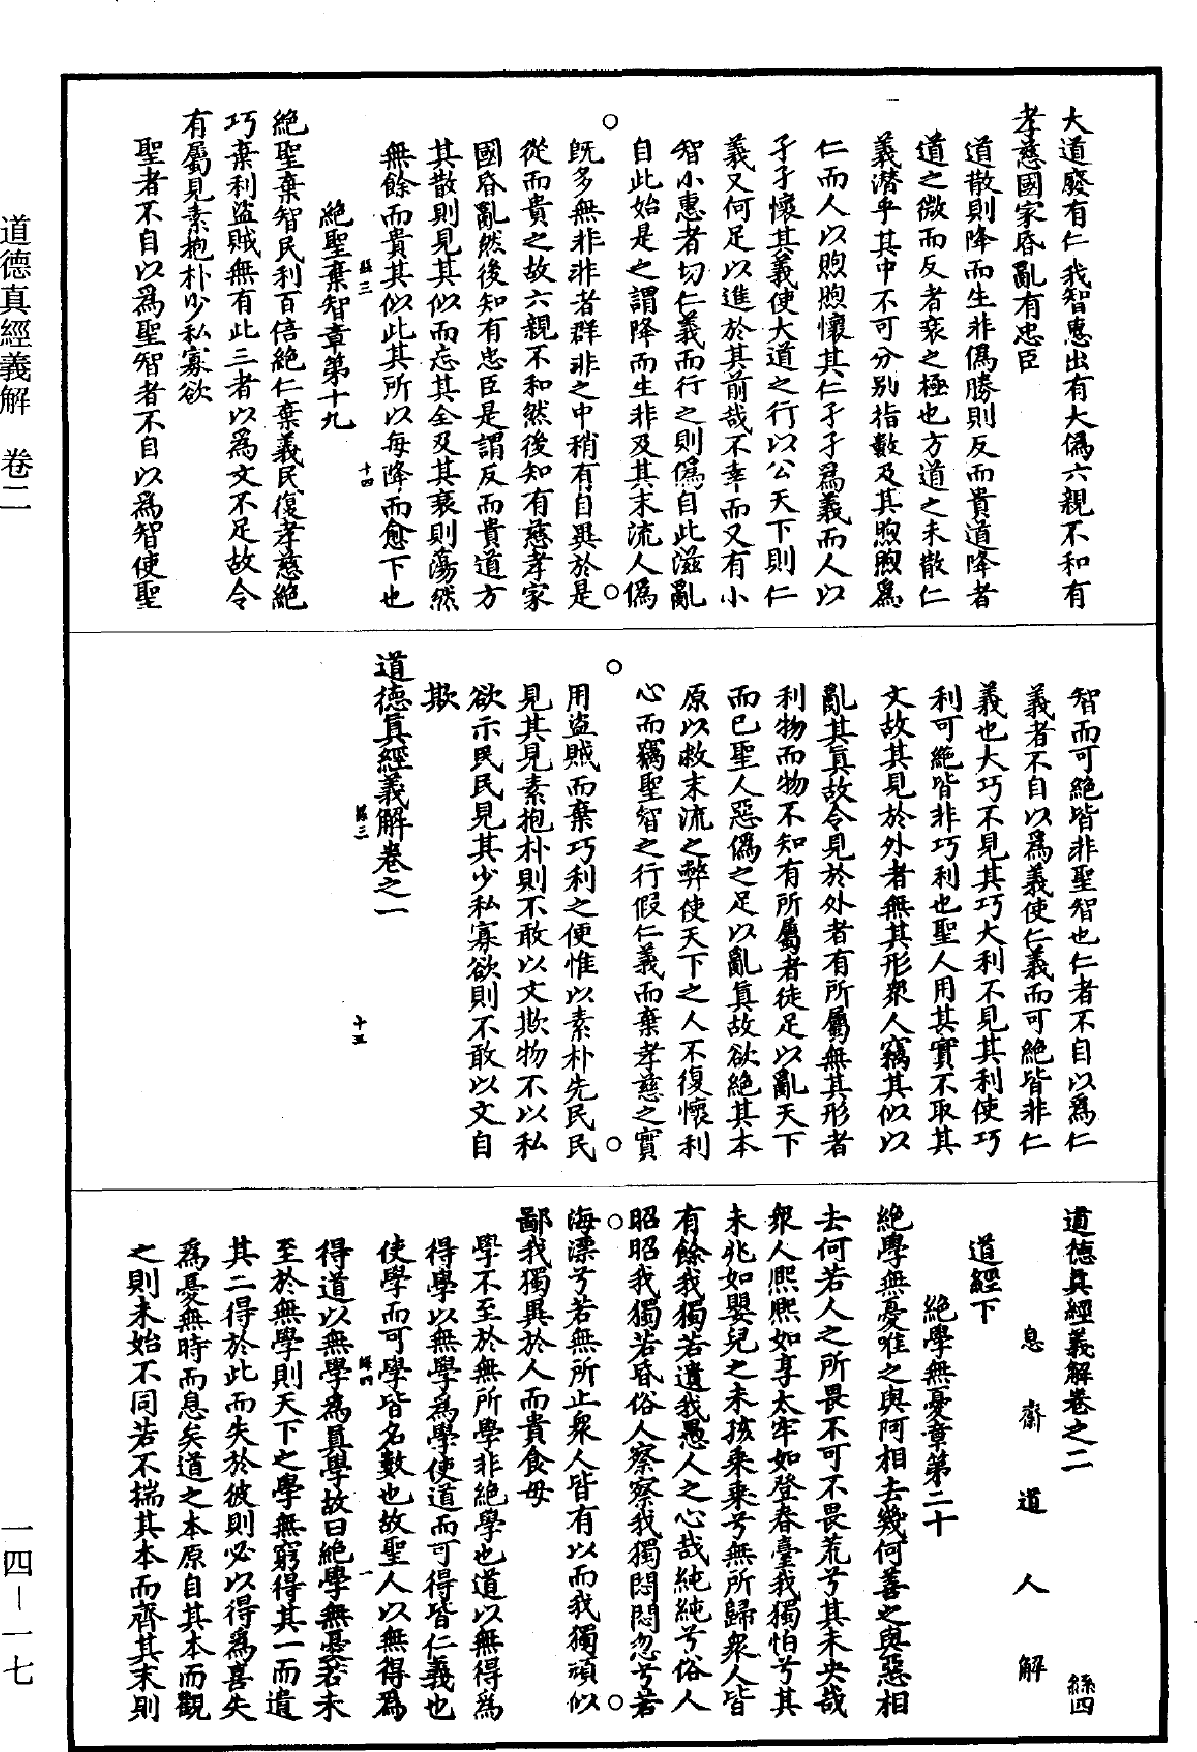 大道廢有仁義智惠出有大僞六親不和有
孝慈國家昏亂有忠臣
道散則降而生非僞勝則反而貴道降者
道之微而反者衰之極也方道之未散仁
義潜乎其中不可分别指數及其煦煦爲
仁而人以煦煦懷其仁孑孑爲義而人以
孑孑懷其義使大道之行以公天下則仁
義又何足以進於其前哉不幸而又有小
智小惠者切仁義而行之則僞自此滋亂
自此始是之謂降而生非及其末流人僞
旣多無非非者群非之中稍有自異於是
從而貴之故六親不和然後知有慈孝家
國昏亂然後知有忠臣是謂反而貴道方
其散則見其似而忘其全及其衰則蕩然
無餘而貴其似此其所以每降而愈下也
絲三
十四
絕聖棄智章第十九
絕聖棄智民利百倍絕仁棄義民復孝慈絕
巧棄利盜賊無有此三者以爲文不足故令
有屬見素抱朴少私寡欲
聖者不自以爲聖智者不自以爲智使聖
智而可絕皆非聖智也仁者不自以爲仁
義者不自以爲義使仁義而可絕皆非仁
義也大巧不見其巧大利不見其利使巧
利可絕皆非巧利也聖人用其實不取其
文故其見於外者無其形衆人竊其似以
亂其眞故令見於外者有所屬無其形者
利物而物不知有所屬者徒足以亂天下
而已聖人惡僞之足以亂眞故欲絕其本
原以救末流之弊使天下之人不復懷利
心而竊聖智之行假仁義而棄孝慈之實
用盜賊而棄巧利之便惟以素朴先民民
見其見素抱朴則不敢以文欺物不以私
欲示民民見其少私寡欲則不敢以文自
欺
道德眞經義解卷之一
絲三
十五
道德眞經義解卷之二
絲四
息齋道人解
道經下
絕學無憂章第二十
絕學無憂唯之與阿相去幾何善之與惡相
去何若人之所畏不可不畏荒兮其未央哉
衆人熙熙如享太牢如登春臺我獨怕兮其
未兆如嬰兒之未孩乘乘兮無所歸衆人皆
有餘我獨若遺我愚人之心哉純純兮俗人
昭昭我獨若昏俗人察察我獨悶悶忽兮若
海漂兮若無所止衆人皆有以而我獨頑似
鄙我獨異於人而貴食母
學不至於無所學非絕學也道以無得爲
得學以無學爲學使道而可得皆仁義也
使學而可學皆名數也故聖人以無得爲
絲四
一
得道以無學爲眞學故曰絕學無憂若未
至於無學則天下之學無窮得其一而遺
其二得於此而失於彼則必以得爲喜失
爲憂無時而息矣道之本原自其本而觀
之則未始不同若不揣其本而齊其末則
道德真經義解　卷二
一四－一七